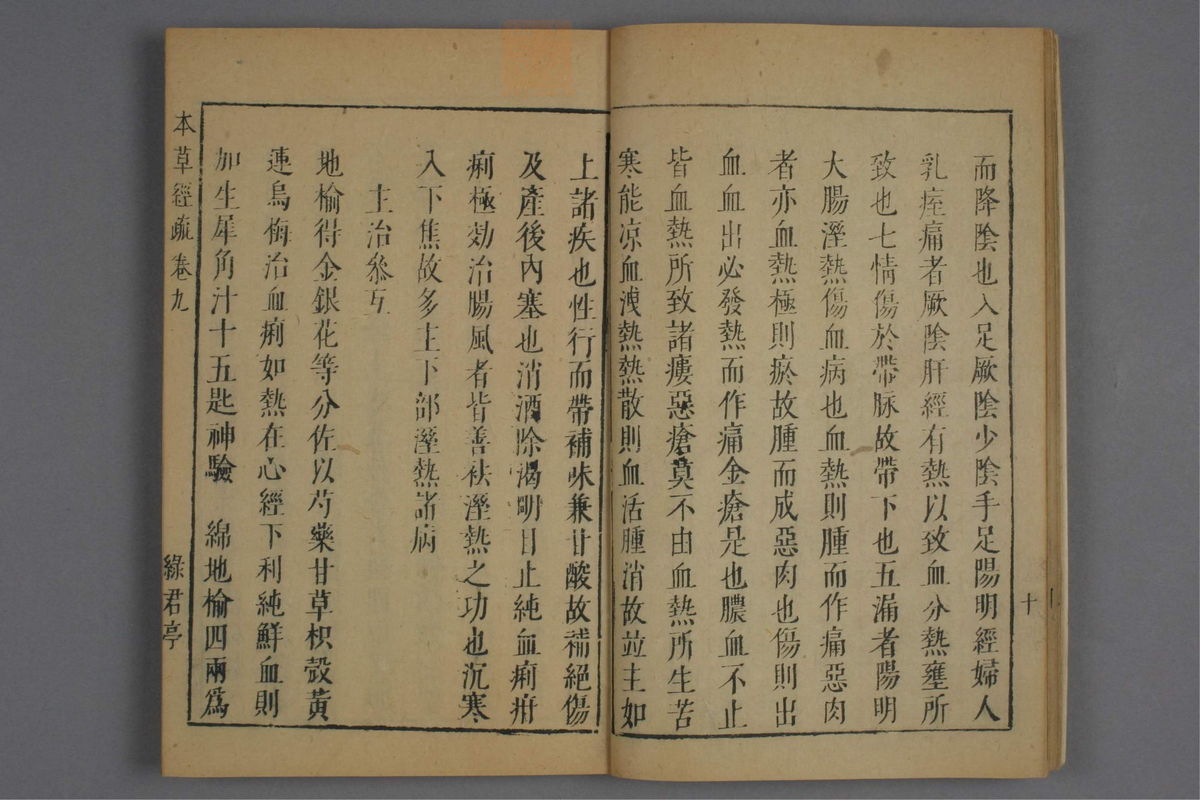 而降陰也入足厥陰少陰手足陽明經婦人
乳痓痛者厥陰肝經有熱以致血分熱壅所
致也七情傷於帶脉故帶下也五漏者陽明
大腸溼熱傷血病也血熱則腫而作痛惡肉
者亦血熱極則瘀故腫而成惡肉也傷則出
血血出必發熱而作痛金瘡是也膿血不止
皆血熱所致諸瘻惡瘡莫不由血熱所生苦
寒能凉血洩熱熱散則血活腫消故竝主如
十
上諸疾也性行而帶補味兼甘酸故補絕傷
及產後內塞也消酒除渴明目止純血痢疳
痢極効治腸風者皆善祛溼熱之功也沉寒
入下焦故多主下部溼熱諸病
主治叅互
地榆得金銀花等分佐以芍藥甘草枳殼黃
連烏梅治血痢如熱在心經下利純鮮血則
加生犀角汁十五匙神驗 綿地榆四兩爲
本草經疏 卷九
綠君亭